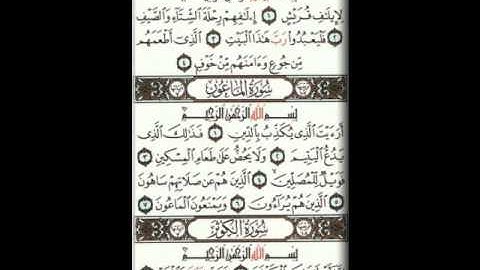 لِإِيلَٰفِ قُرَيْشٍ ١ إِۦلَٰفِهِمْ رِحْلَةَ ٱلشِّتَآءِ وَٱلصَّيْفِ
٢ فَلْيَعْبُدُوا۟ رَبَّ هَٰذَا ٱلْبَيْتِ ٣ ٱلَّذِىٓ أَطْعَمَهُم
مِّن جُوعٍ وَءَامَنَهُم مِّنْ خَوْفٍۭ ٤
سُورَةُ المَاعُونِ
بِسْمِ ٱللَّهِ ٱلرَّحْمَٰنِ ٱلرَّحِيمِ
أَرَءَيْتَ ٱلَّذِى يُكَذِّبُ بِٱلدِّينِ ١ فَذَٰلِكَ ٱلَّذِى
يَدُعُّ ٱلْيَتِيمَ ٢ وَلَا يَحُضُّ عَلَىٰ طَعَامِ ٱلْمِسْكِينِ ٣
فَوَيْلٌ لِّلْمُصَلِّينَ ٤ ٱلَّذِينَ هُمْ عَن صَلَاتِهِمْ سَاهُونَ
٥ ٱلَّذِينَ هُمْ يُرَآءُونَ ٦ وَيَمْنَعُونَ ٱلْمَاعُونَ ٧
سُورَةُ الكَوْثَرِ
بِسْمِ ٱللَّهِ ٱلرَّحْمَٰنِ ٱلرَّحِيمِ